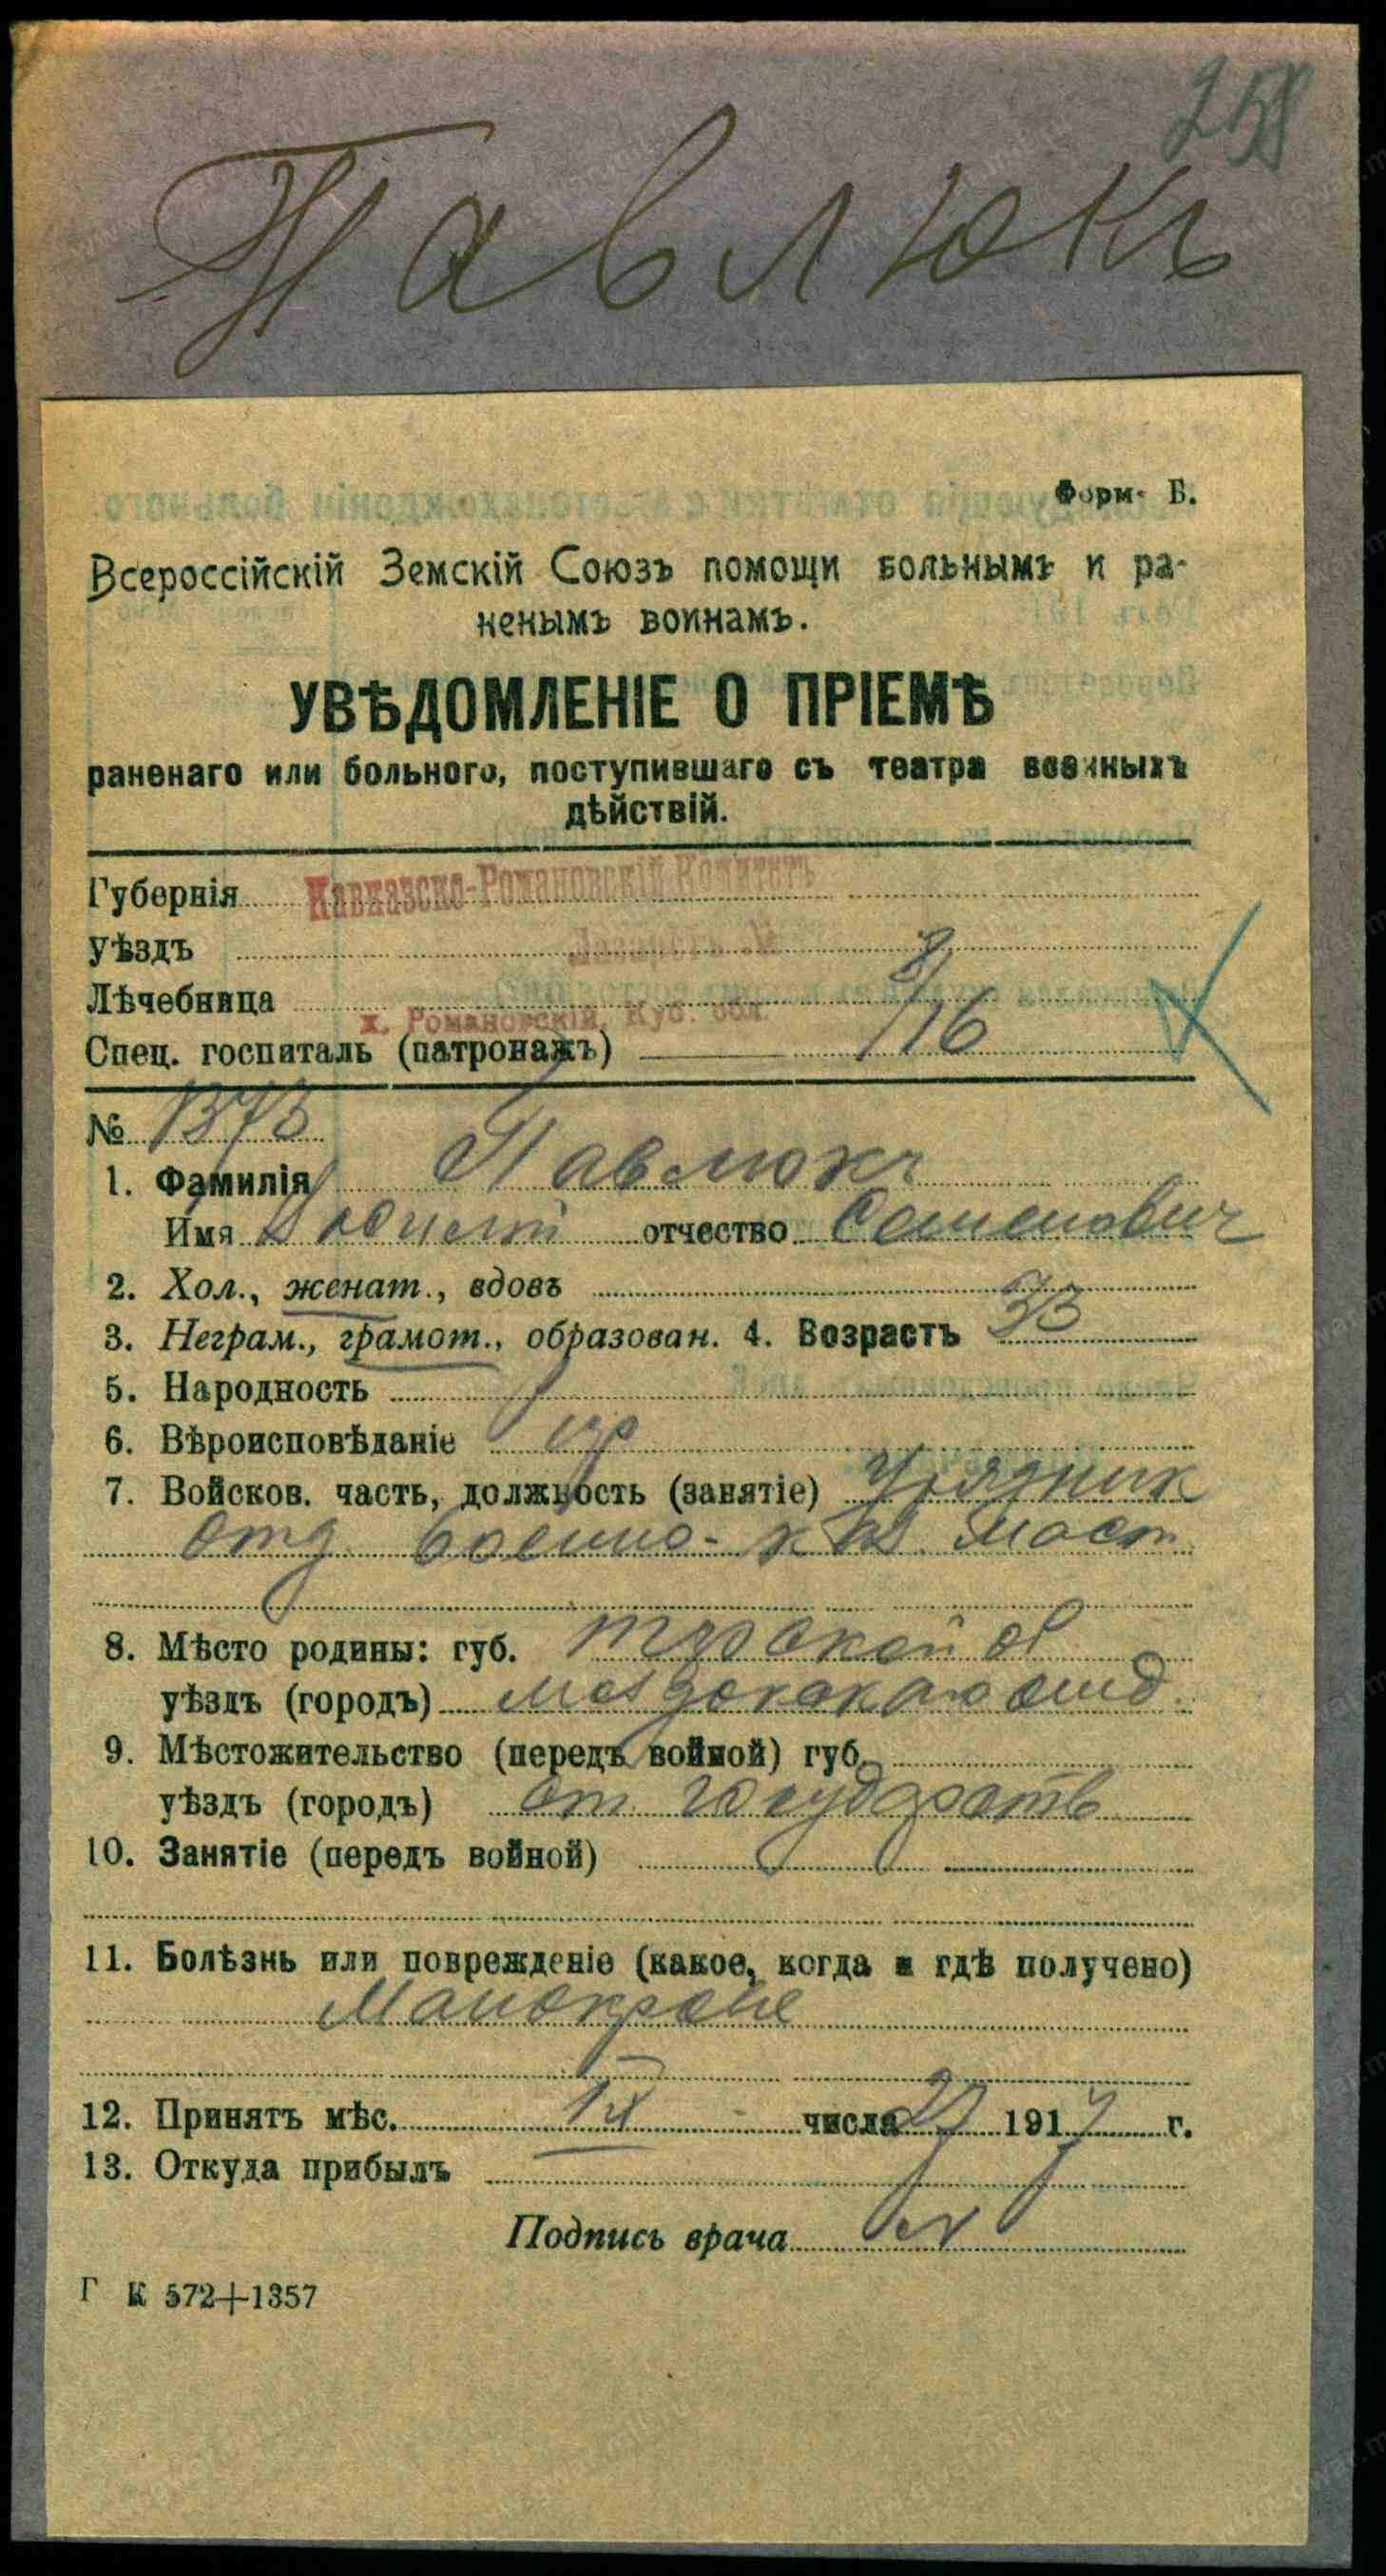 258
Павлюкъ
Форм. Б.
Всероссійскій Земскій Союзъ помощи больнымъ и ра-
ненымъ воинамъ.
УВѢДОМЛЕНІЕ О ПРІЕМѢ
раненаго или больного, поступившаго съ театра военныхъ
дѣйствій.
Губернія Кавказско-Романовскій Комитетъ
уѣздъ
Лѣчебница 8/16
х. Романовскій, Куб. обл.
Спец. госпиталь (патронажъ)
№ 1373
1. Фамилія Павлюкъ
Имя отчество Семенович
2. Хол., женат., вдовъ
3. Неграм., грамот., образован. 4. Возрастъ 33
5. Народность
6. Вѣроисповѣданіе пр
7. Войсков. часть, должность (занятіе) Урядник
отд. военно- маст.
8. Мѣсто родины: губ. Терской об
уѣздъ (городъ) Моздокскаго отд.
9. Мѣстожительство (передъ войной) губ.
уѣздъ (городъ) ст. Государств
10. Занятіе (передъ войной)
11. Болѣзнь или поврежденіе (какое, когда и гдѣ получено)
Малокровіе
12. Принятъ мѣс. IX числа 27 1917 г.
13. Откуда прибылъ
Подпись врача
Г К 572+1357